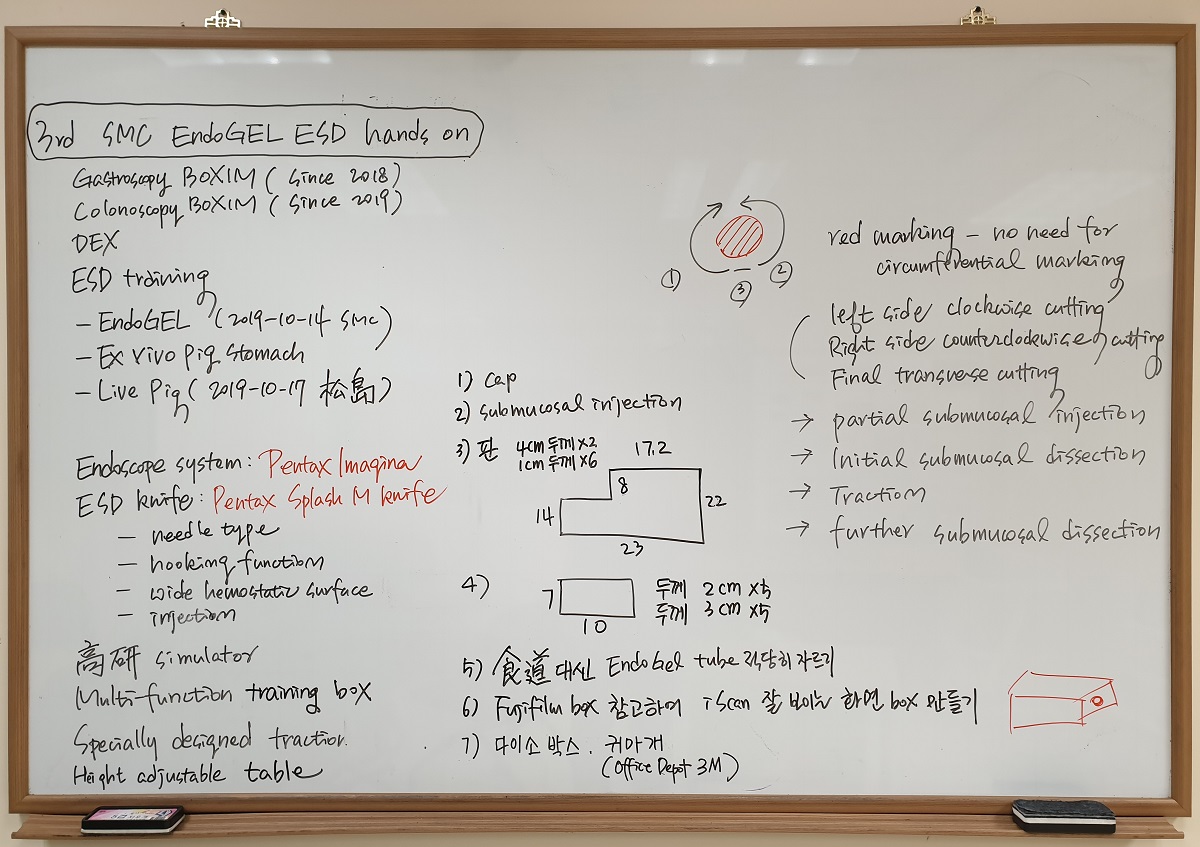 3rd SMC EndoGEL ESD hands on
Gastroscopy BOXIM ( since 2018)
Colonoscopy BOXIM ( since 2019)
DEX
ESD training
- EndoGEL (2019-10-14 SMC)
- Ex vivo pig stomach
- Live Pig ( 2019-10-17 松島)
Endoscope system: Pentax Imagina
ESD knife: Pentax Splash M knife
- needle type
- hooking function
- wide hemostatic surface
- injection
高硏 simulator
Multi-function training box
Specially designed traction.
Height adjustable table
1) cap
2) submucosal injection
3) 판 4cm 두께 x2
1cm 두께 x6
17.2
8
14
22
23
4)
7
10
두께 2cm x5
두께 3cm x5
5) 食道 대신 EndoGel tube 적당히 자르기
6) Fujifilm box 참고하여 iScan 잘 보이는 화면 box 만들기
7) 다이소 박스. 귀마개
(Office Depot 3M)
①
②
③
red marking - no need for
circumferential marking
left side clockwise cutting
Right side counterclockwise cutting
Final transverse cutting
→ partial submucosal injection
→ Initial submucosal dissection
→ Traction
→ further submucosal dissection